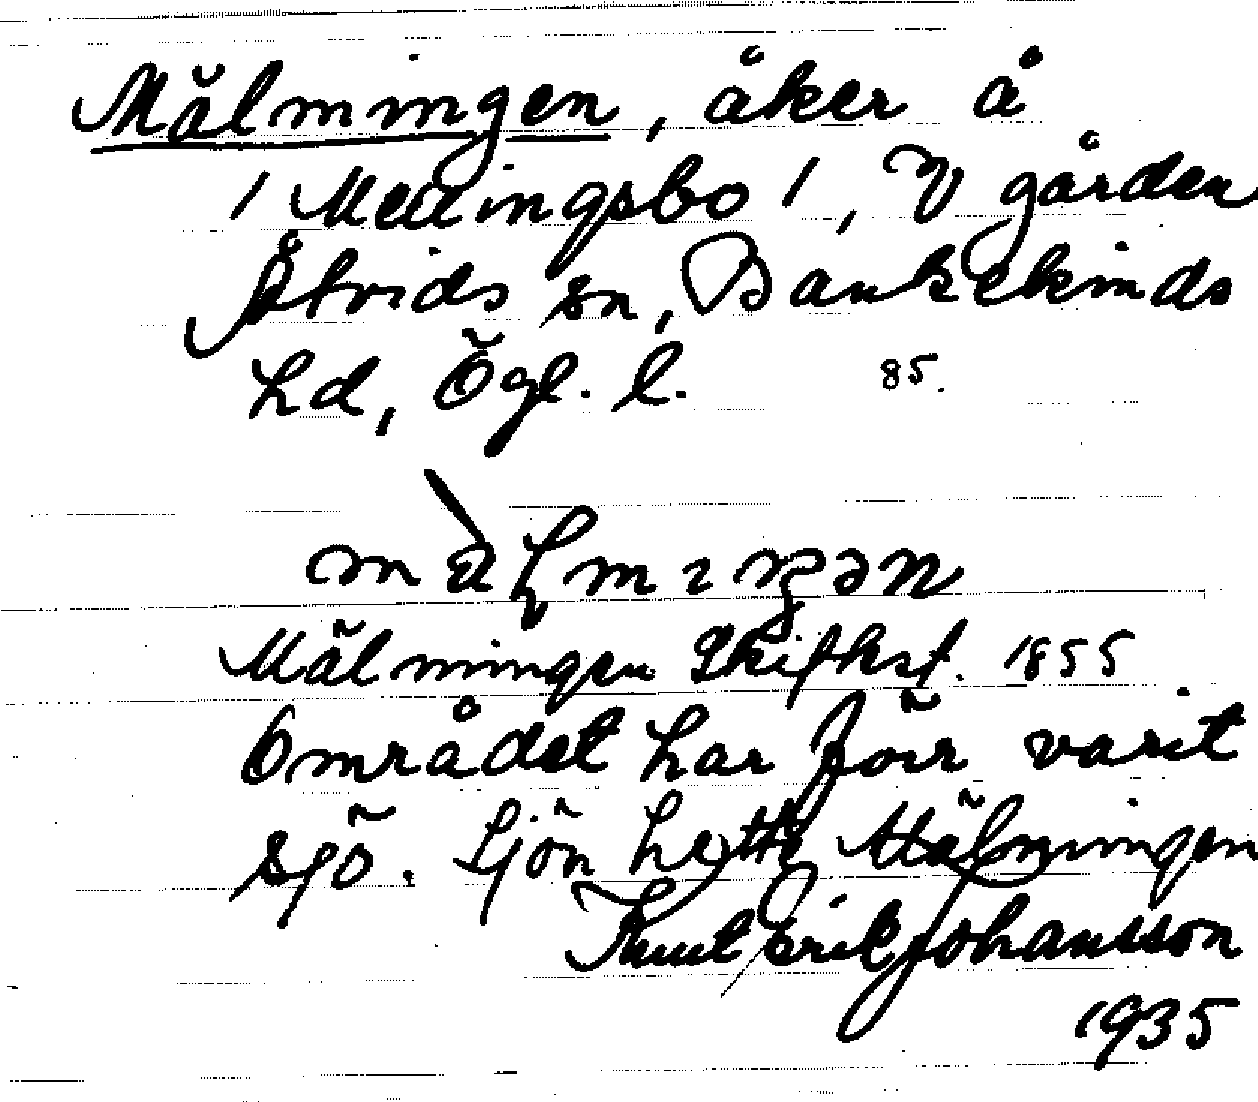 Mälmingen, åker å
/ Mellingsbo /, V gården
Åtvids sn, Bankekinds
hd, Ögl. l. 85.
Mälmingen Skifksf. 1855
Området har förr varit
sjö. Sjön hette Mälmingen
Knut Erik Johansson
1935